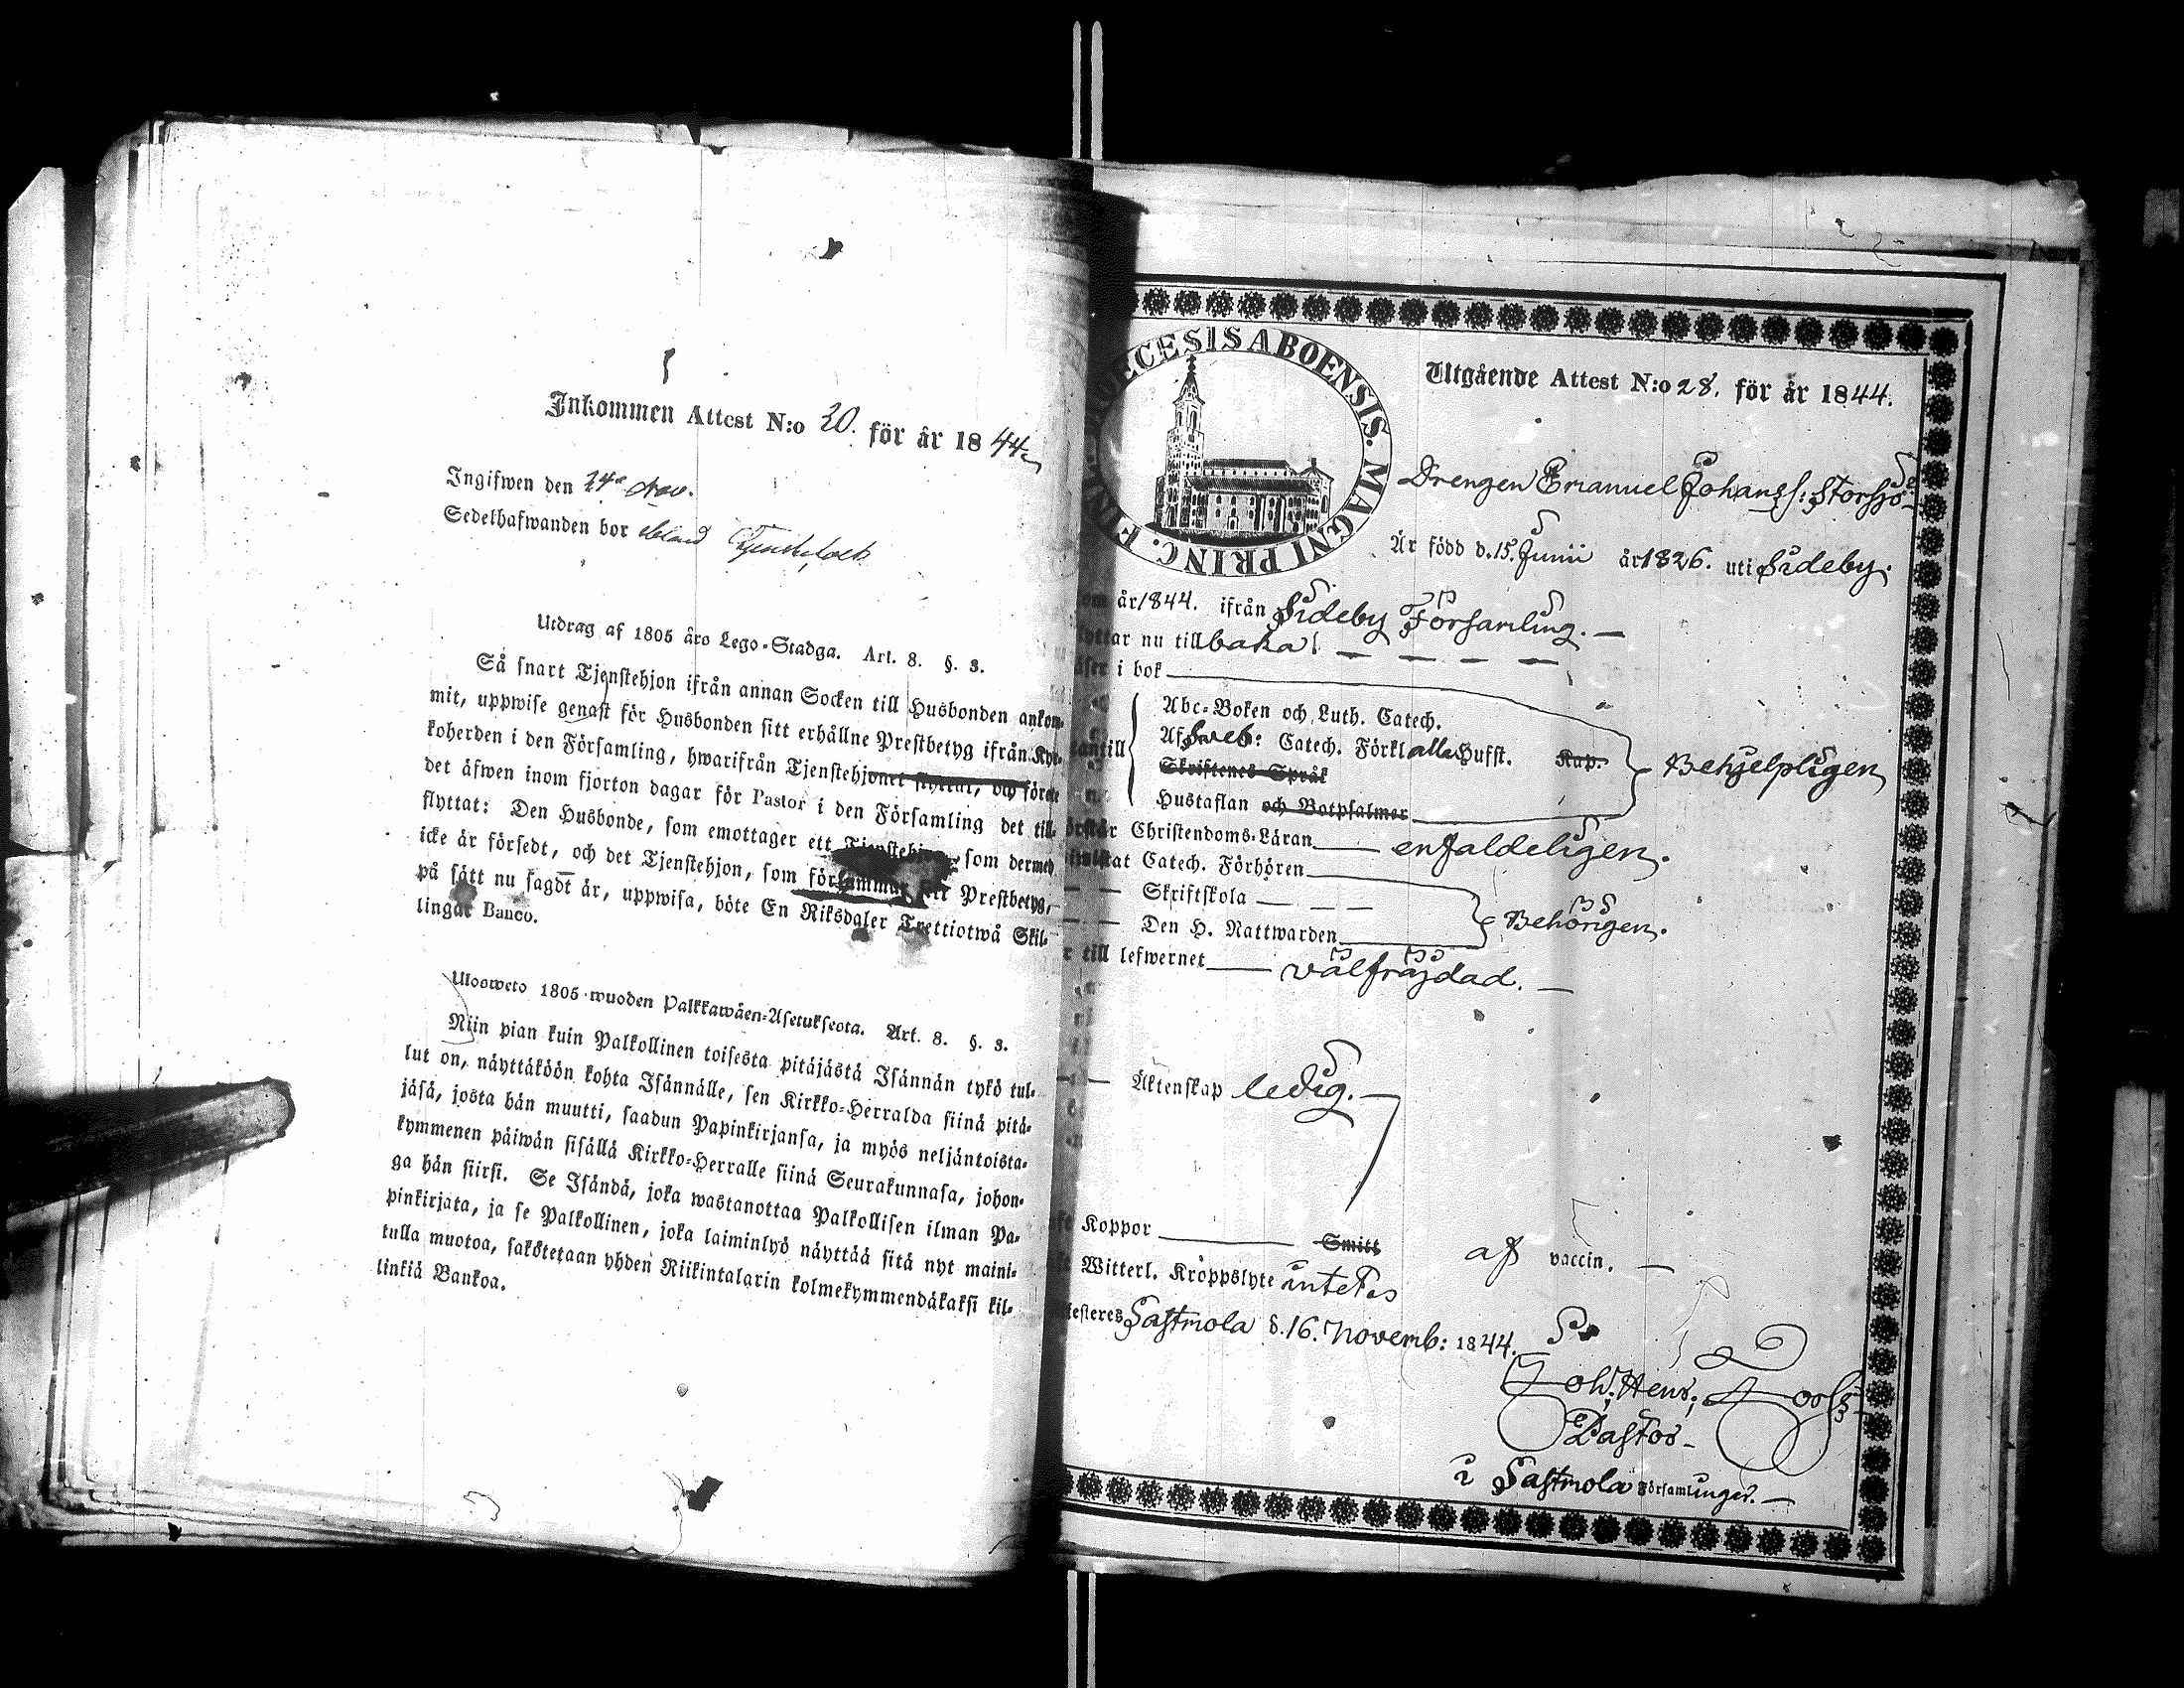 Inkommen Attest N:o 20. för år 1844
Ingifwen den 24de Nov.
Sedelhafwanden bor ibland Tjenstefolk
Utdrag af 1805 års Lego-Stadga. Art. 8. §. 3.
Så snart Tjenstehjon ifrån annan Socken till Husbonden ankom-
mit, uppwise genast för Husbonden sitt erhållne Prestbetyg ifrån Kyr-
koherden i den Församling, hwarifrån Tjenstehjonet flyttat, och förete
det äfwen inom fjorton dagar för Pastor i den Församling det till-
flyttat: Den Husbonde, som emottager ett Tjenstehjon, som dermed
icke är försedt, och det Tjenstehjon, som försummar sitt Prestbetyg,
på sätt nu sagdt är, uppwisa, böte En Riksdaler Trettiotwå Skil-
lingar Banco.
Ulosweto 1805 wuoden Palkkawäen-Asetuksesta. Art. 8. §. 3.
Niin pian kuin Palkollinen toisesta pitäjästä Isännän tykö tul-
lut on, näyttäköön kohta Isännälle, sen Kirkko-Herralda siinä pitä-
jäsä, josta hän muutti, saadun Papinkirjansa, ja myös neljäntoista-
kymmenen päiwän sisällä Kirkko-Herralle siinä Seurakunnasa, johon-
ga hän siirsi. Se Isändä, joka wastanottaa Palkollisen ilman Pa-
pinkirjata, ja se Palkollinen, joka laiminlyö näyttää sitä nyt maini-
tulla muotoa, sakötetaan yhden Riikintalarin kolmekymmendäkaksi kil-
linkiä Bankoa.
DIOECESIS ABOENSIS. MAGNI PRINC.
Utgående Attest N:o 28. för år 1844.
Drengen Emanuel Johanss: Storsjö
Är född d. 15. Junii år 1826. uti Sideby.
år 1844. ifrån Sideby Församling.
nu tillbaka!
i bok
Abc-Boken och Luth. Catech.
Af Sveb: Catech. Förkl alla Hufst. Kap. Behjelpligen
Skriftenes Språk
Hustaflan och Botpsalmer
Christendoms-Läran enfaldeligen.
Catech. Förhören
Skriftskola
Den H. Nattwarden Behörigen.
till lefwernet välfräjdad.
Äktenskap ledig.
Koppor Smitt af vaccin.
Witterl. Kroppslyte intet
Sastmola d. 16. Novemb: 1844.
Joh: Henr:
Pastor
i Sastmola Församlingar.